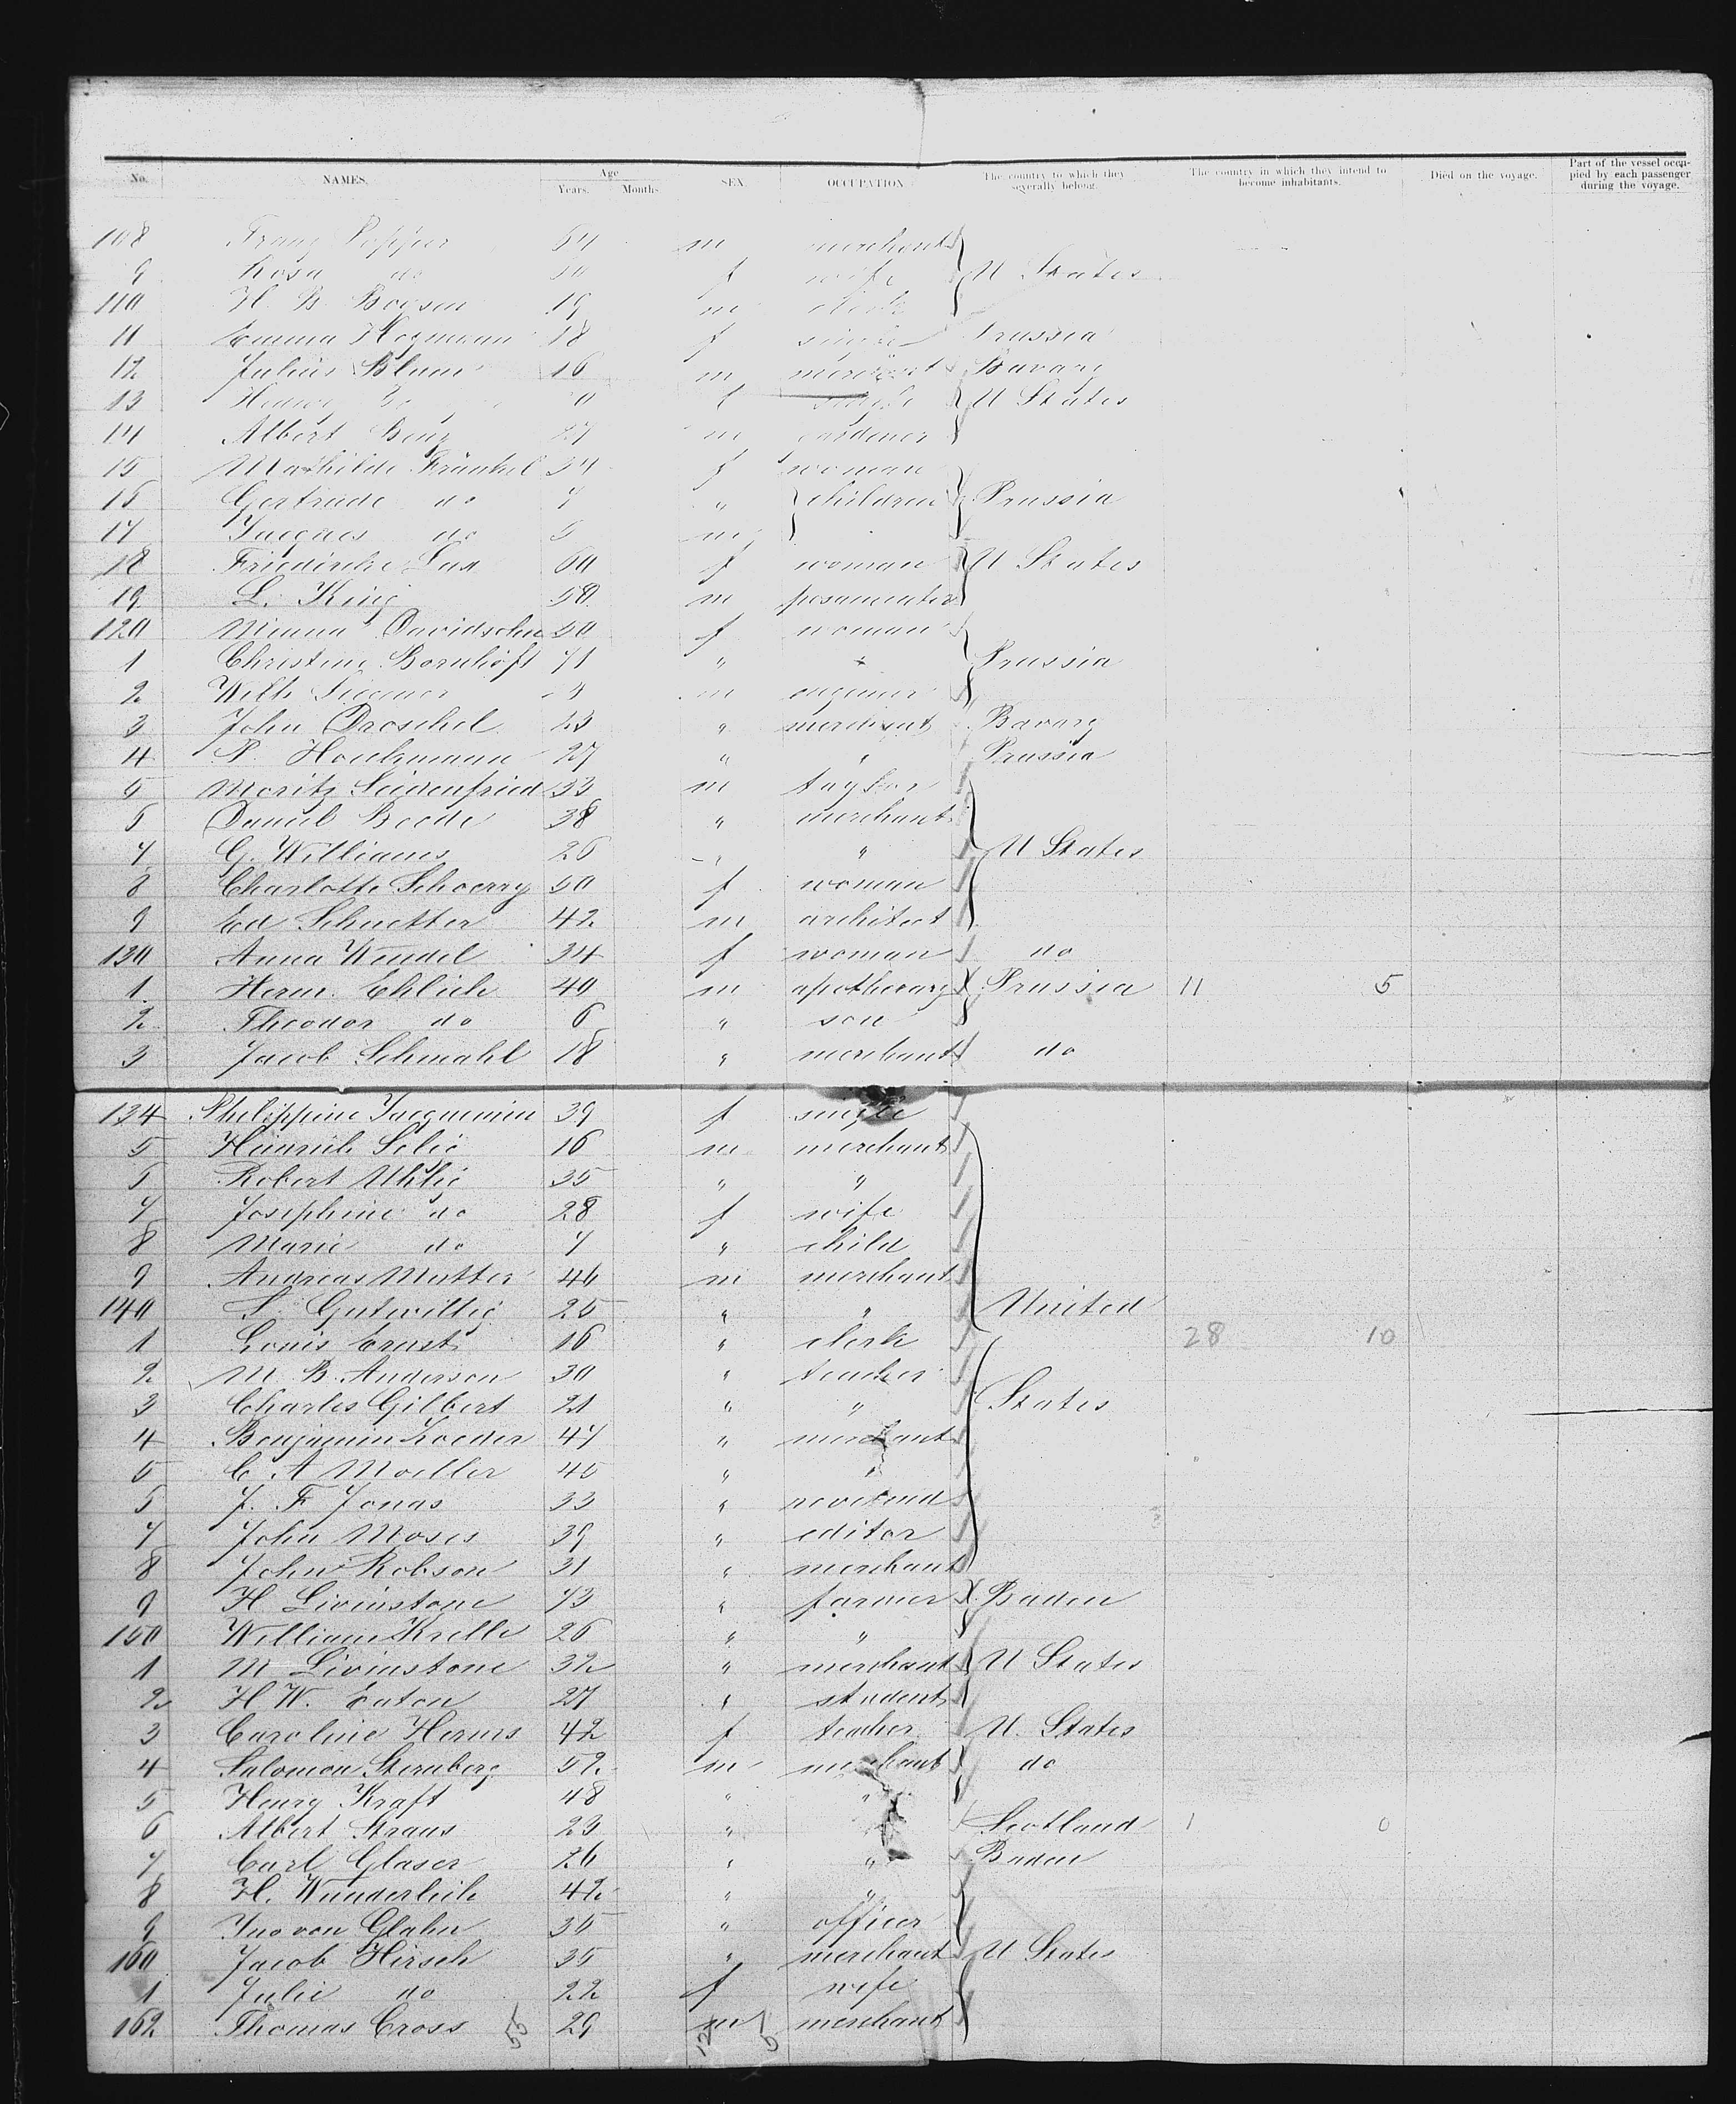 No. NAMES. Age Years. Months SEX. OCCUPATION. The country to which they severally belong. The country in which they intend to become inhabitants. Died on the voyage. Part of the vessel occupied by each passenger during the voyage.
108 Franz Popper 54 m merchant
9 Rosa do f wife U States
110 H. B. Boysen 19 m clerk
11 Emma 18 f single Prussia
12 Julius Blum 16 m merchant Bavary
13 f single U States
14 Albert Benz 27 m gardener
15 Mathilde Fränkel 34 f woman
16 Gertrude do 7 " children Prussia
17 Jacques do 5 m
18 Friedirike Lax 60 f woman U States
19 L. King 50 m posamenter
120 Minna Davidsohn 50 f woman
1 Christine Bornhöft 71 " " Prussia
2 Wilh m engineer
3 John Droschel 23 " merchant Bavary
4 P. 27 " " Prussia
5 Moritz Seidenfried 33 m taylor
6 Daniel Boode 38 " merchant
7 G. Williams 26 " " U States
8 Charlotte Schoerry 50 f woman
9 Ed Schuetter 42 m architect
130 Anna Wendel 34 f woman do
1 Herm. Ehlich 40 m apothecary Prussia 11 5
2 Theodor do 6 " son
3 Jacob Schmahl 18 " merchant do
134 Philippine Jacquemin 39 f single
5 Heinrich Selig 16 m merchant
6 Robert Uhlig 35 " "
7 Josephine do 28 f wife
8 Marie do 7 " child
9 Andreas Mutter 46 m merchant
140 S. Gutwillig 25 " " United
1 Louis Ernst 16 " clerk 28 10
2 M. B. Anderson 30 " teacher
3 Charles Gilbert 21 " " States
4 Benjamin Roeder 47 " merchant
5 C. A Moeller 45 " "
6 J. F Jonas 33 " reverend
7 John Moses 39 " editor
8 John Robson 31 " merchant
9 H Livinstone 73 " farmer Baden
150 William Krelle 26 " "
1 M Livinstone 32 " merchant U States
2 H W. Eaton 27 " student
3 Caroline Herms 42 f teacher U. States
4 Salomon Sternberg 52 m merchant do
5 Henry Kraft 48 " "
6 Albert Straus 23 " Scotland 1 0
7 Carl Glaser 26 " " Baden
8 H. Wunderlich 42 " "
9 Jno von Glahn 35 " officer
160 Jacob Hirsch 35 " merchant U States
1 Julie do 22 f wife
162 Thomas Cross 29 m merchant
55 12